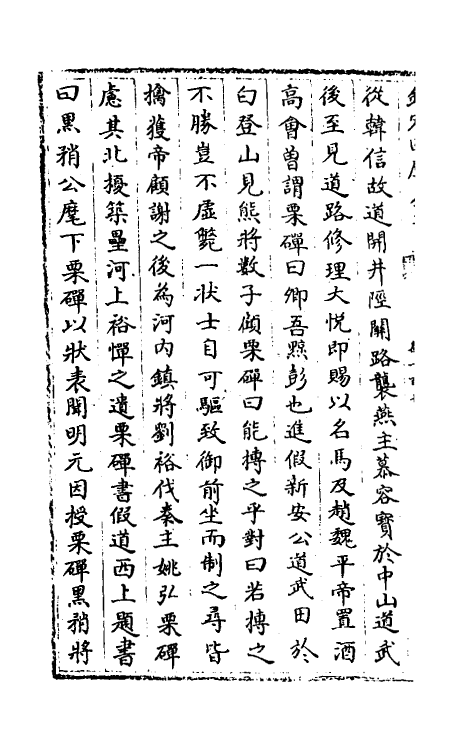 從韓信故道開井陘關路襲燕主慕容寶於中山道武
後至見道路修理大悅即賜以名馬及趙魏平帝置酒
高會曽謂栗磾曰卿吾黥彭也進假新安公道武田於
白登山見熊將数子顧栗磾曰能搏之乎對曰若搏之
不勝豈不虛斃一壮士自可驅致御前坐而制之尋皆
擒獲帝顧謝之後為河内鎮將劉裕伐秦主姚弘栗磾
慮其北擾築壘河上裕憚之遺栗磾書假道西上題書
曰黒矟公麾下栗磾以狀表聞明元因授栗磾黒矟將